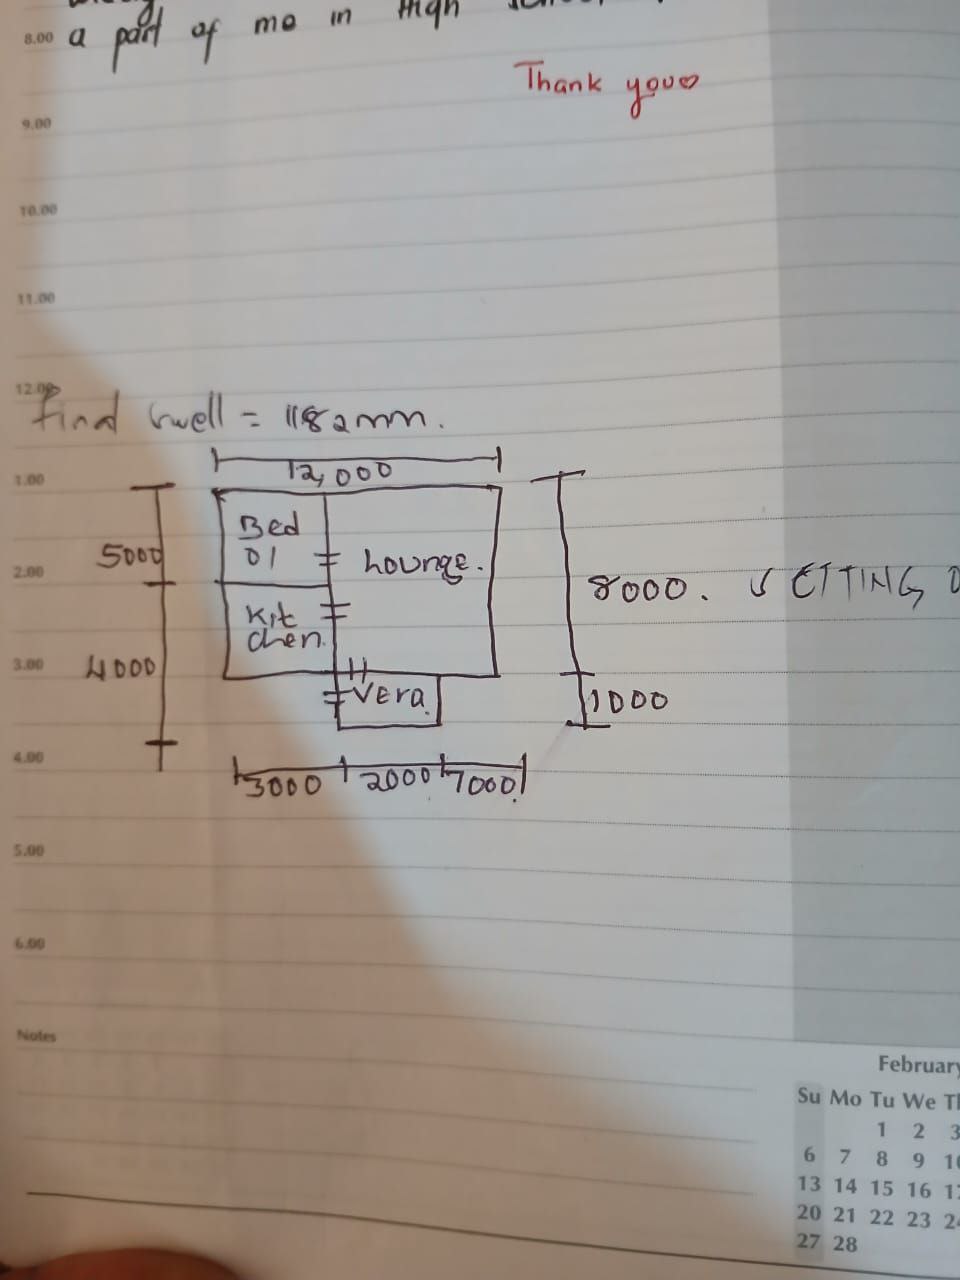 8.00 a part of me in High
Thank you
9.00
10.00
11.00
12.00
1.00
12,000
Bed
01
5000
Lounge.
2.00
8000. SETTING
Kit
chen.
3.00
4000
Vera.
1000
4.00
3000 2000 7000
5.00
6.00
Notes
February
Su Mo Tu We
1 2 3
6 7 8 9
13 14 15 16
20 21 22 23
27 28